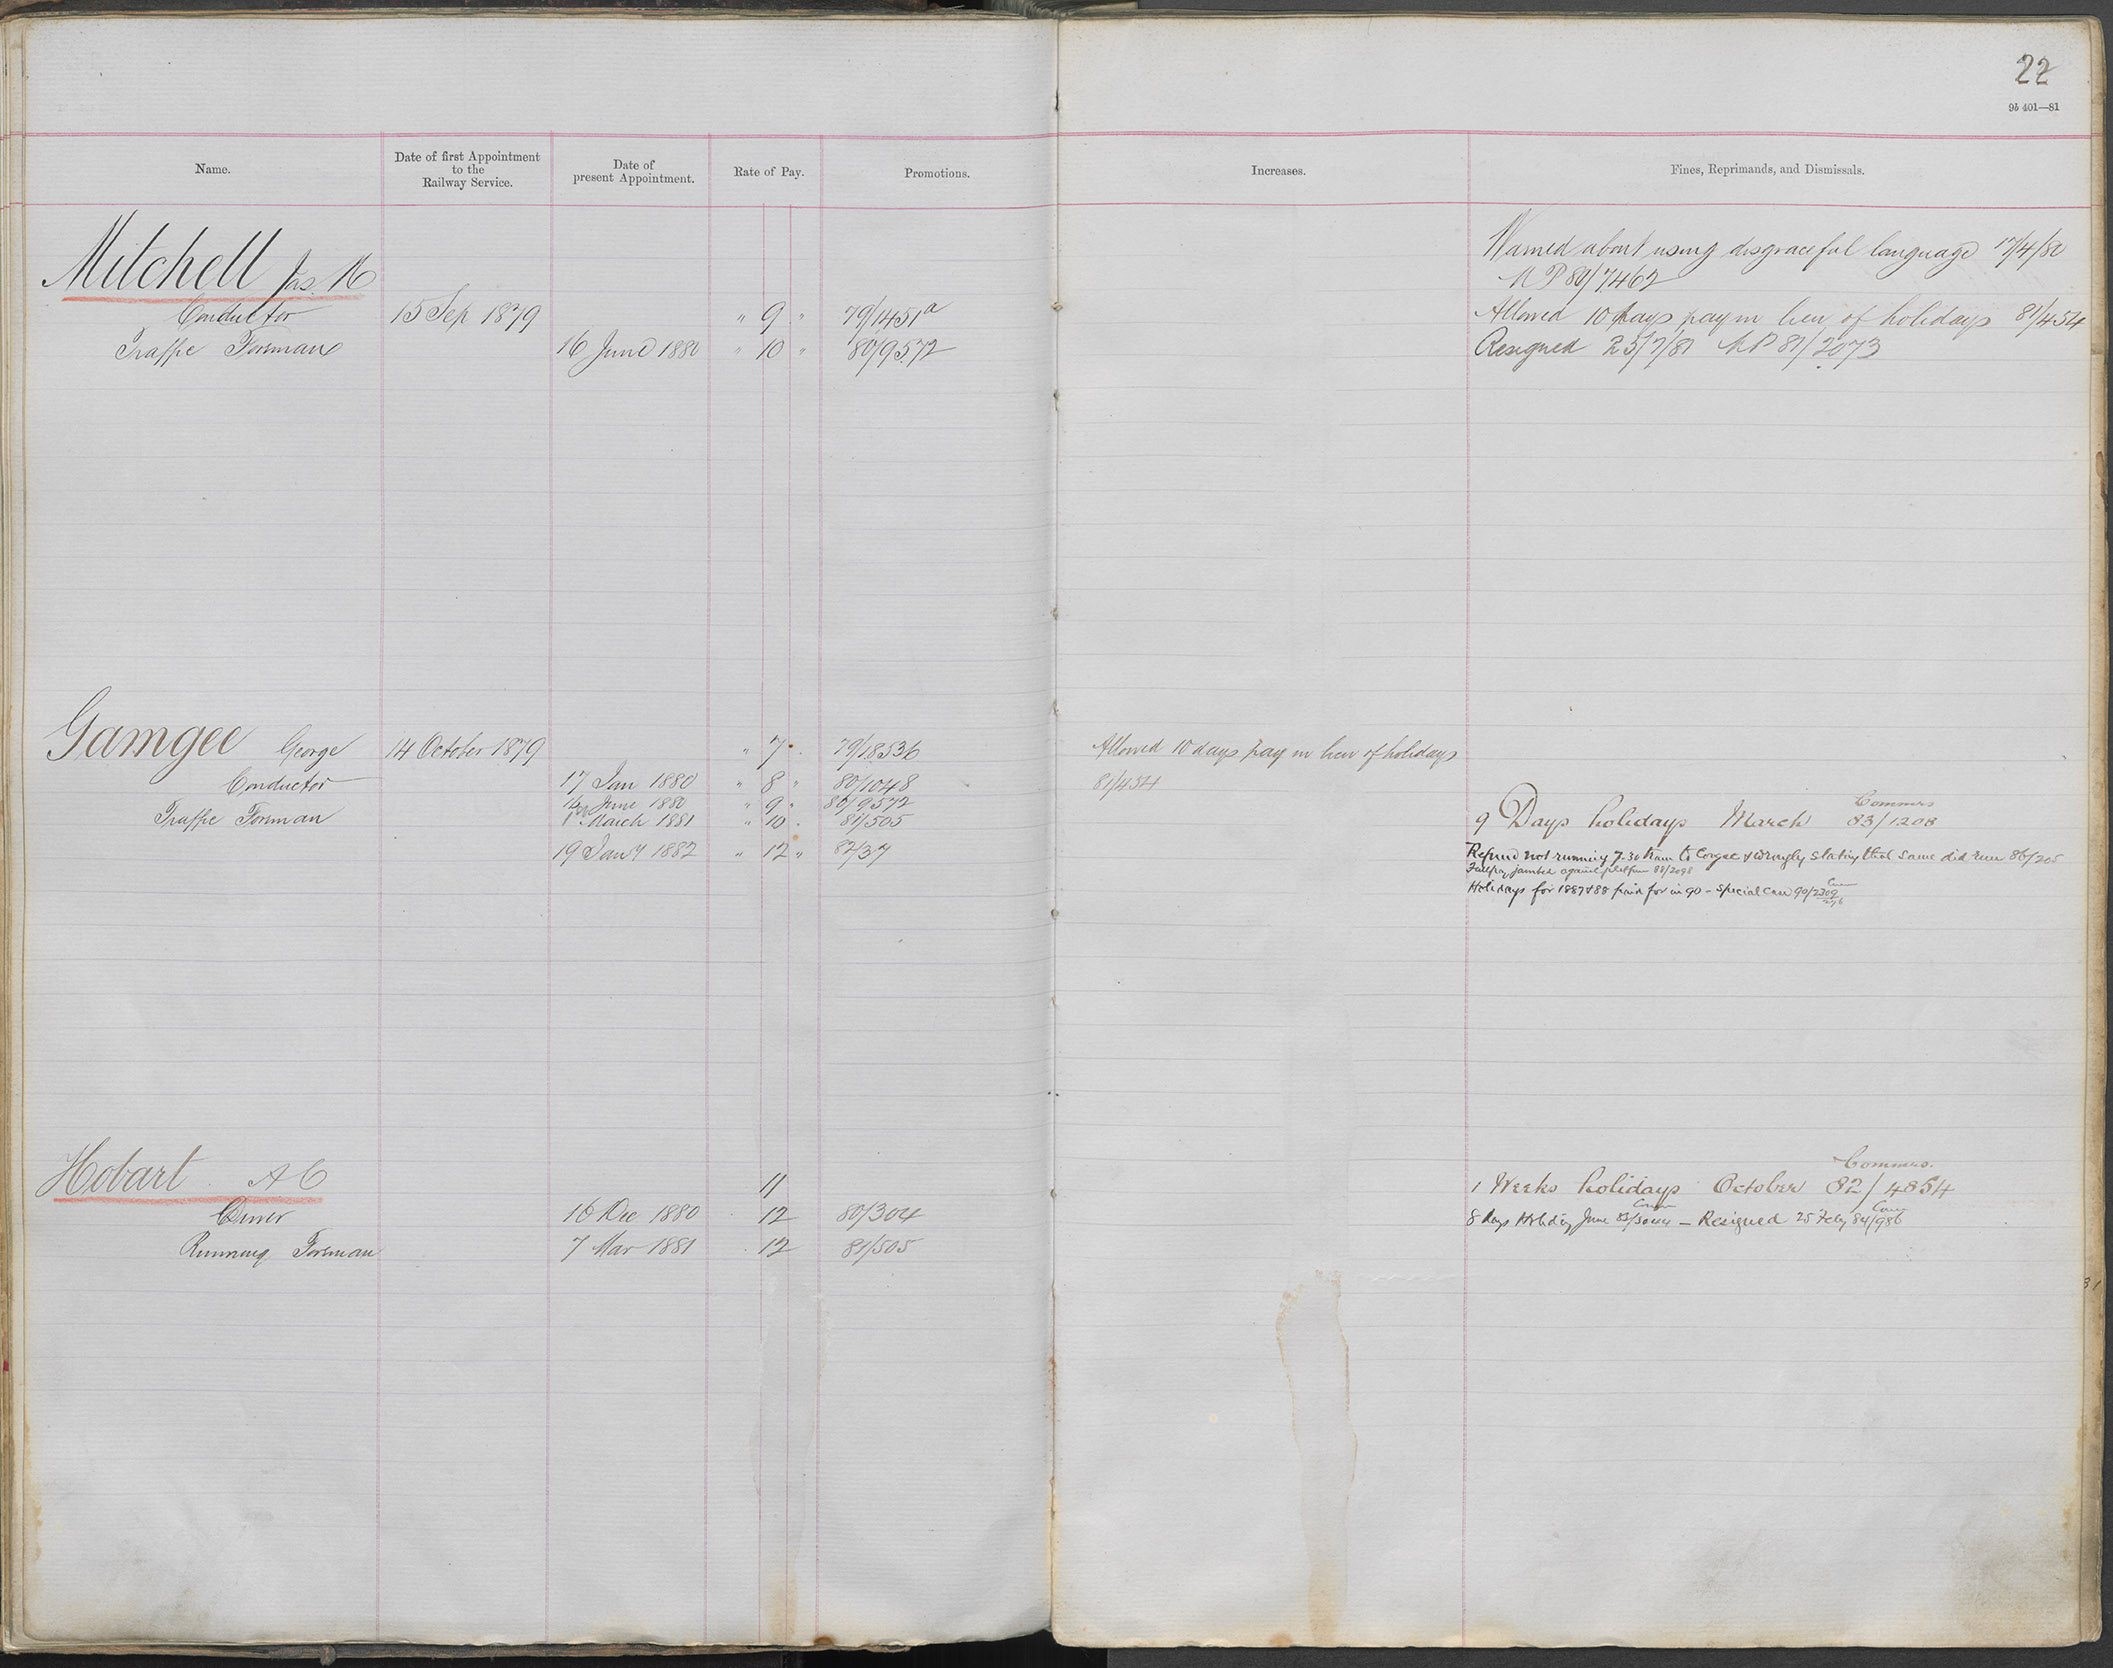 22
9b 401—81
Name.
Date of first Appointment
to the
Railway Service.
Date of
present Appointment.
Rate of Pay.
Promotions.
Increases.
Fines, Reprimands, and Dismissals.
Mitchell Jas. M
Conductor 15 Sep 1879 " 9 " 79/1451a
Traffic Forsman 16 June 1880 " 10 " 80/9572
Warned about using disgraceful language 17/4/80
M P 80/7462
Allowed 10 days pay in lieu of holidays 81/454
Resigned 25/7/81 M P 81/2073
Gamgee George 14 October 1879 " 7 . 79/18536
Conductor 17 Jan 1880 " 8 " 80/1048
16 June 1880 " 9 " 80/9572
Traffic Forsman 1st March 1881 " 10 . 81/505
19 Jany 1882 " 12 " 82/37
Allowed 10 days pay in lieu of holidays
81/454
Commrs
9 Days holidays March 83/1208
not running 7.30 tram to & wrongly stating that same did run 86/205
jambed against 88/2098
Holidays for 1887 & 88 paid for in 90 - special case 90/2309
Hobart A C 11
Driver 16 Dec 1880 . 12 80/304
Running Forsman 7 Mar 1881 . 12 81/505
Commrs.
1 Weeks holidays October 82/4854
8 days Holiday June 83/3044 — Resigned 25 Feby 84/986
31